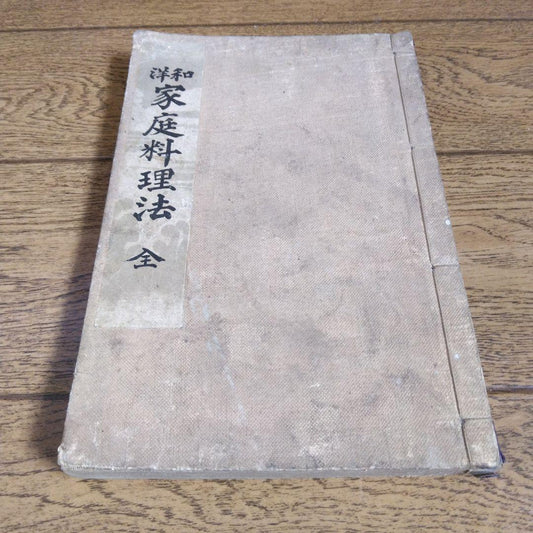 和洋
家庭料理法
全